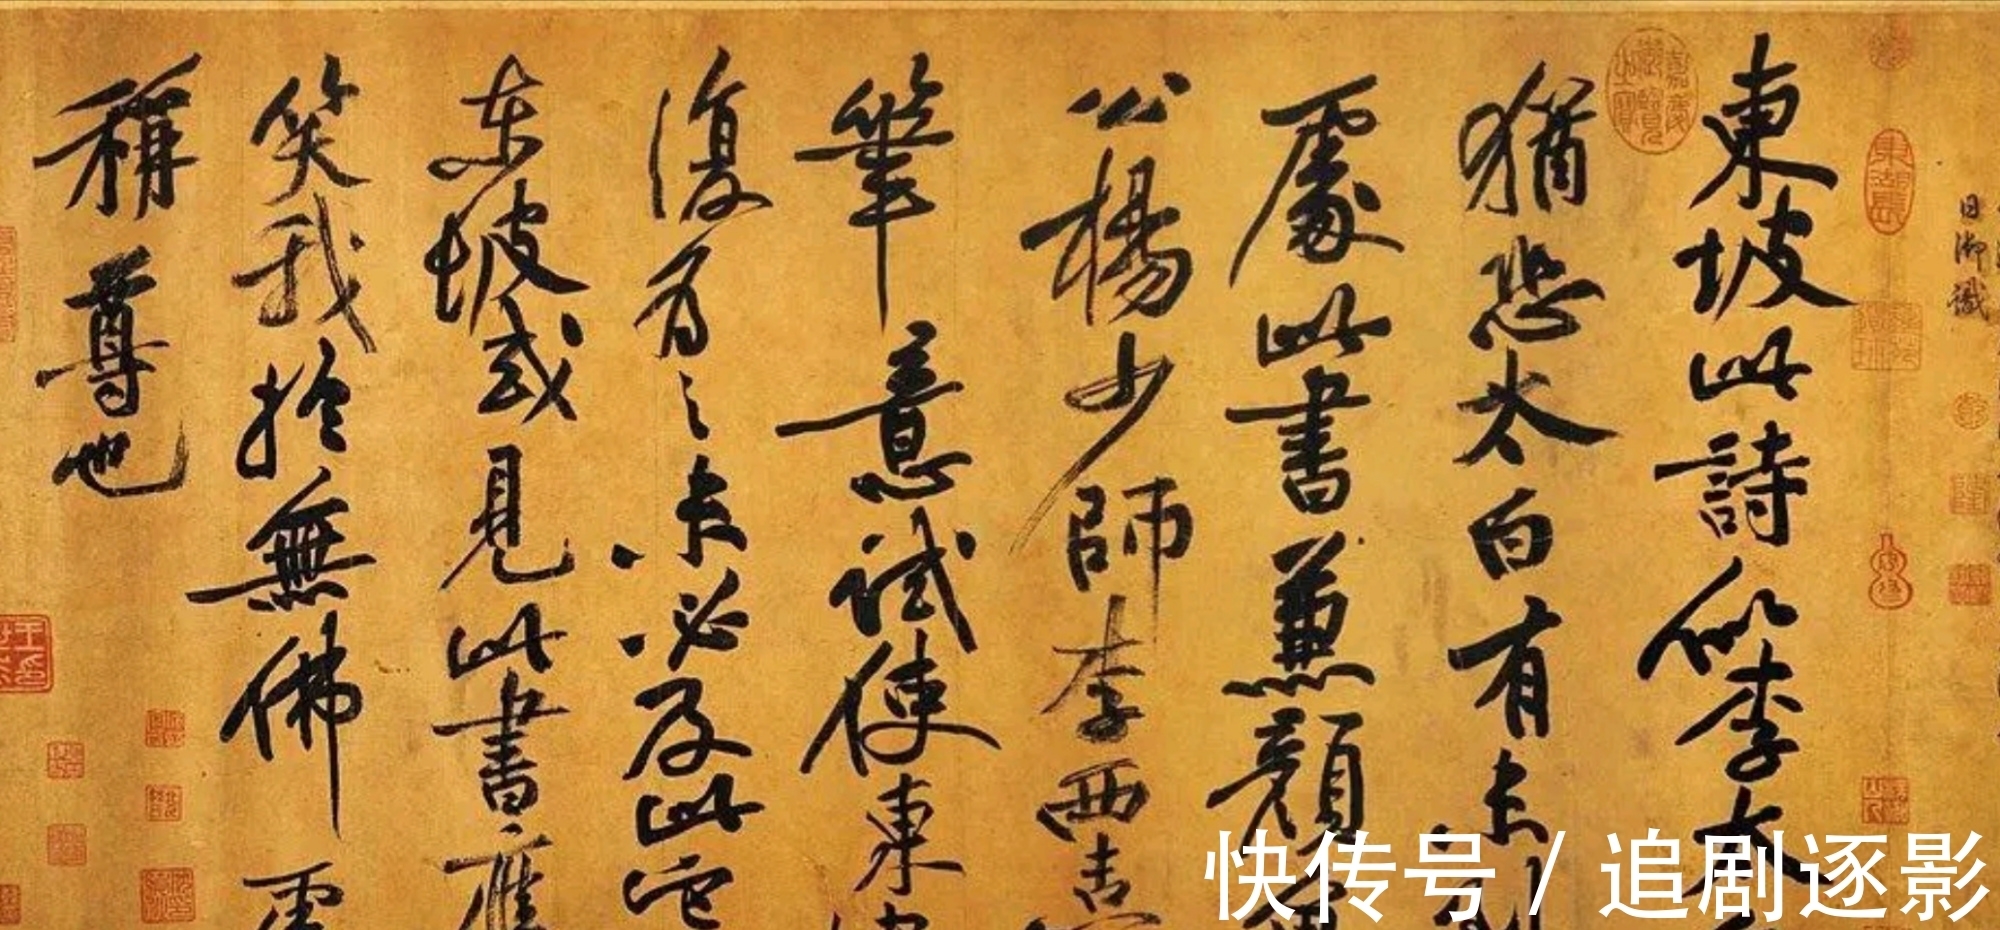 日御識
東坡此詩似李太
猶恐太白有未到
處此書兼顏
公楊少師李西臺
筆意試使東坡
復為之未必及此它
東坡或見此書應
笑我於無佛處
稱尊也
嘉慶御覽之寶
快传号 / 追剧逐影